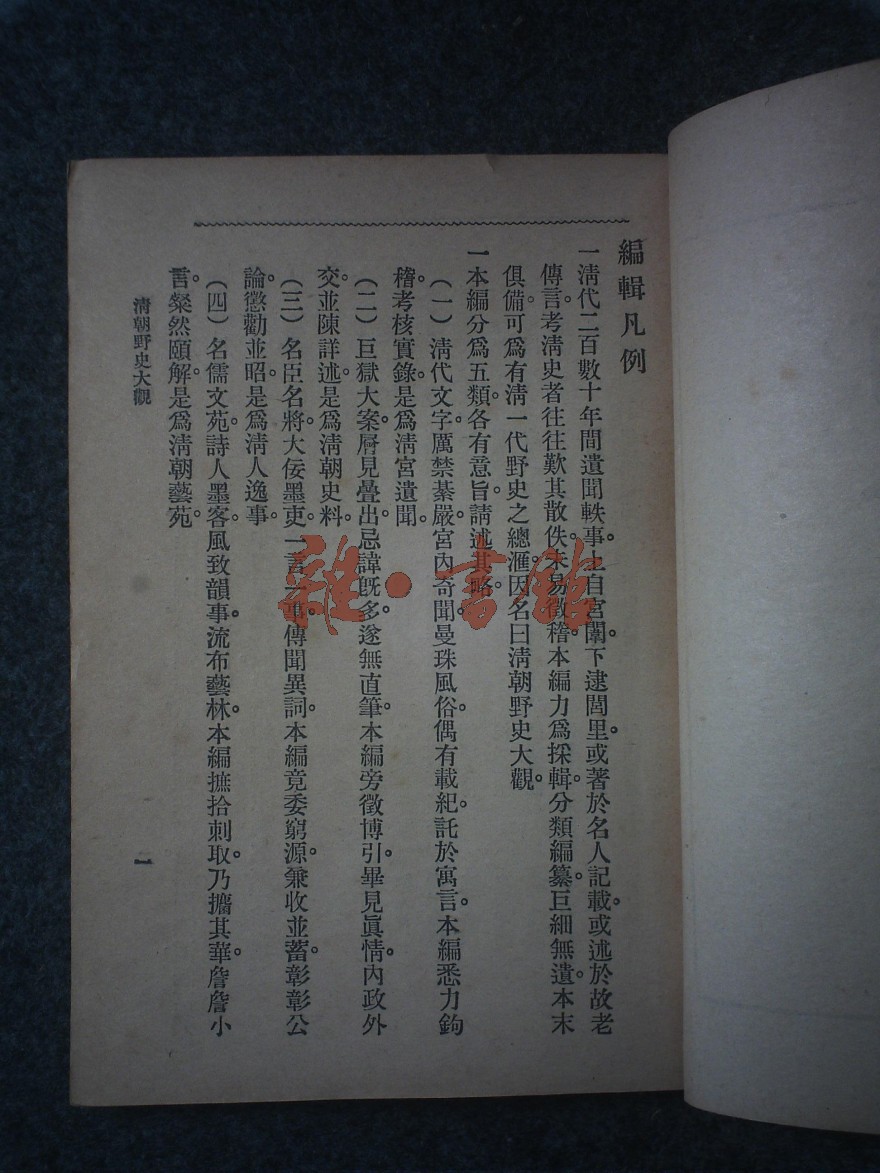 編輯凡例
一淸代二百數十年間遺聞軼事。上自宮闈。下逮閭里。或著於名人記載。或述於故老
傳言。考淸史者往往歎其散佚。未易徵稽。本編力爲採輯。分類編纂。巨細無遺。本末
俱備。可爲有淸一代野史之總滙。因名曰淸朝野史大觀。
一本編分爲五類。各有意旨。請述其略。
（一）淸代文字厲禁綦嚴。宮內奇聞。曼珠風俗。偶有載紀。託於寓言。本編悉力鉤
稽。考核實錄。是爲淸宮遺聞。
（二）巨獄大案。層見疊出。忌諱旣多。遂無直筆。本編旁徵博引。畢見眞情。內政外
交。並陳詳述。是爲淸朝史料。
（三）名臣名將。大佞墨吏。一言一事。傳聞異詞。本編竟委窮源。兼收並蓄。彰彰公
論。懲勸並昭。是爲淸人逸事。
（四）名儒文苑。詩人墨客。風致韻事。流布藝林。本編摭拾刺取。乃擷其華。詹詹小
言。粲然頤解。是爲淸朝藝苑。
淸朝野史大觀
一
雜·書館